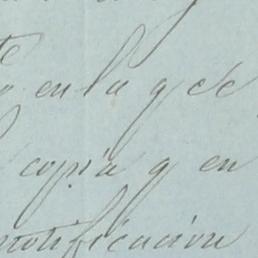 en la q de
copia q en
notificacion